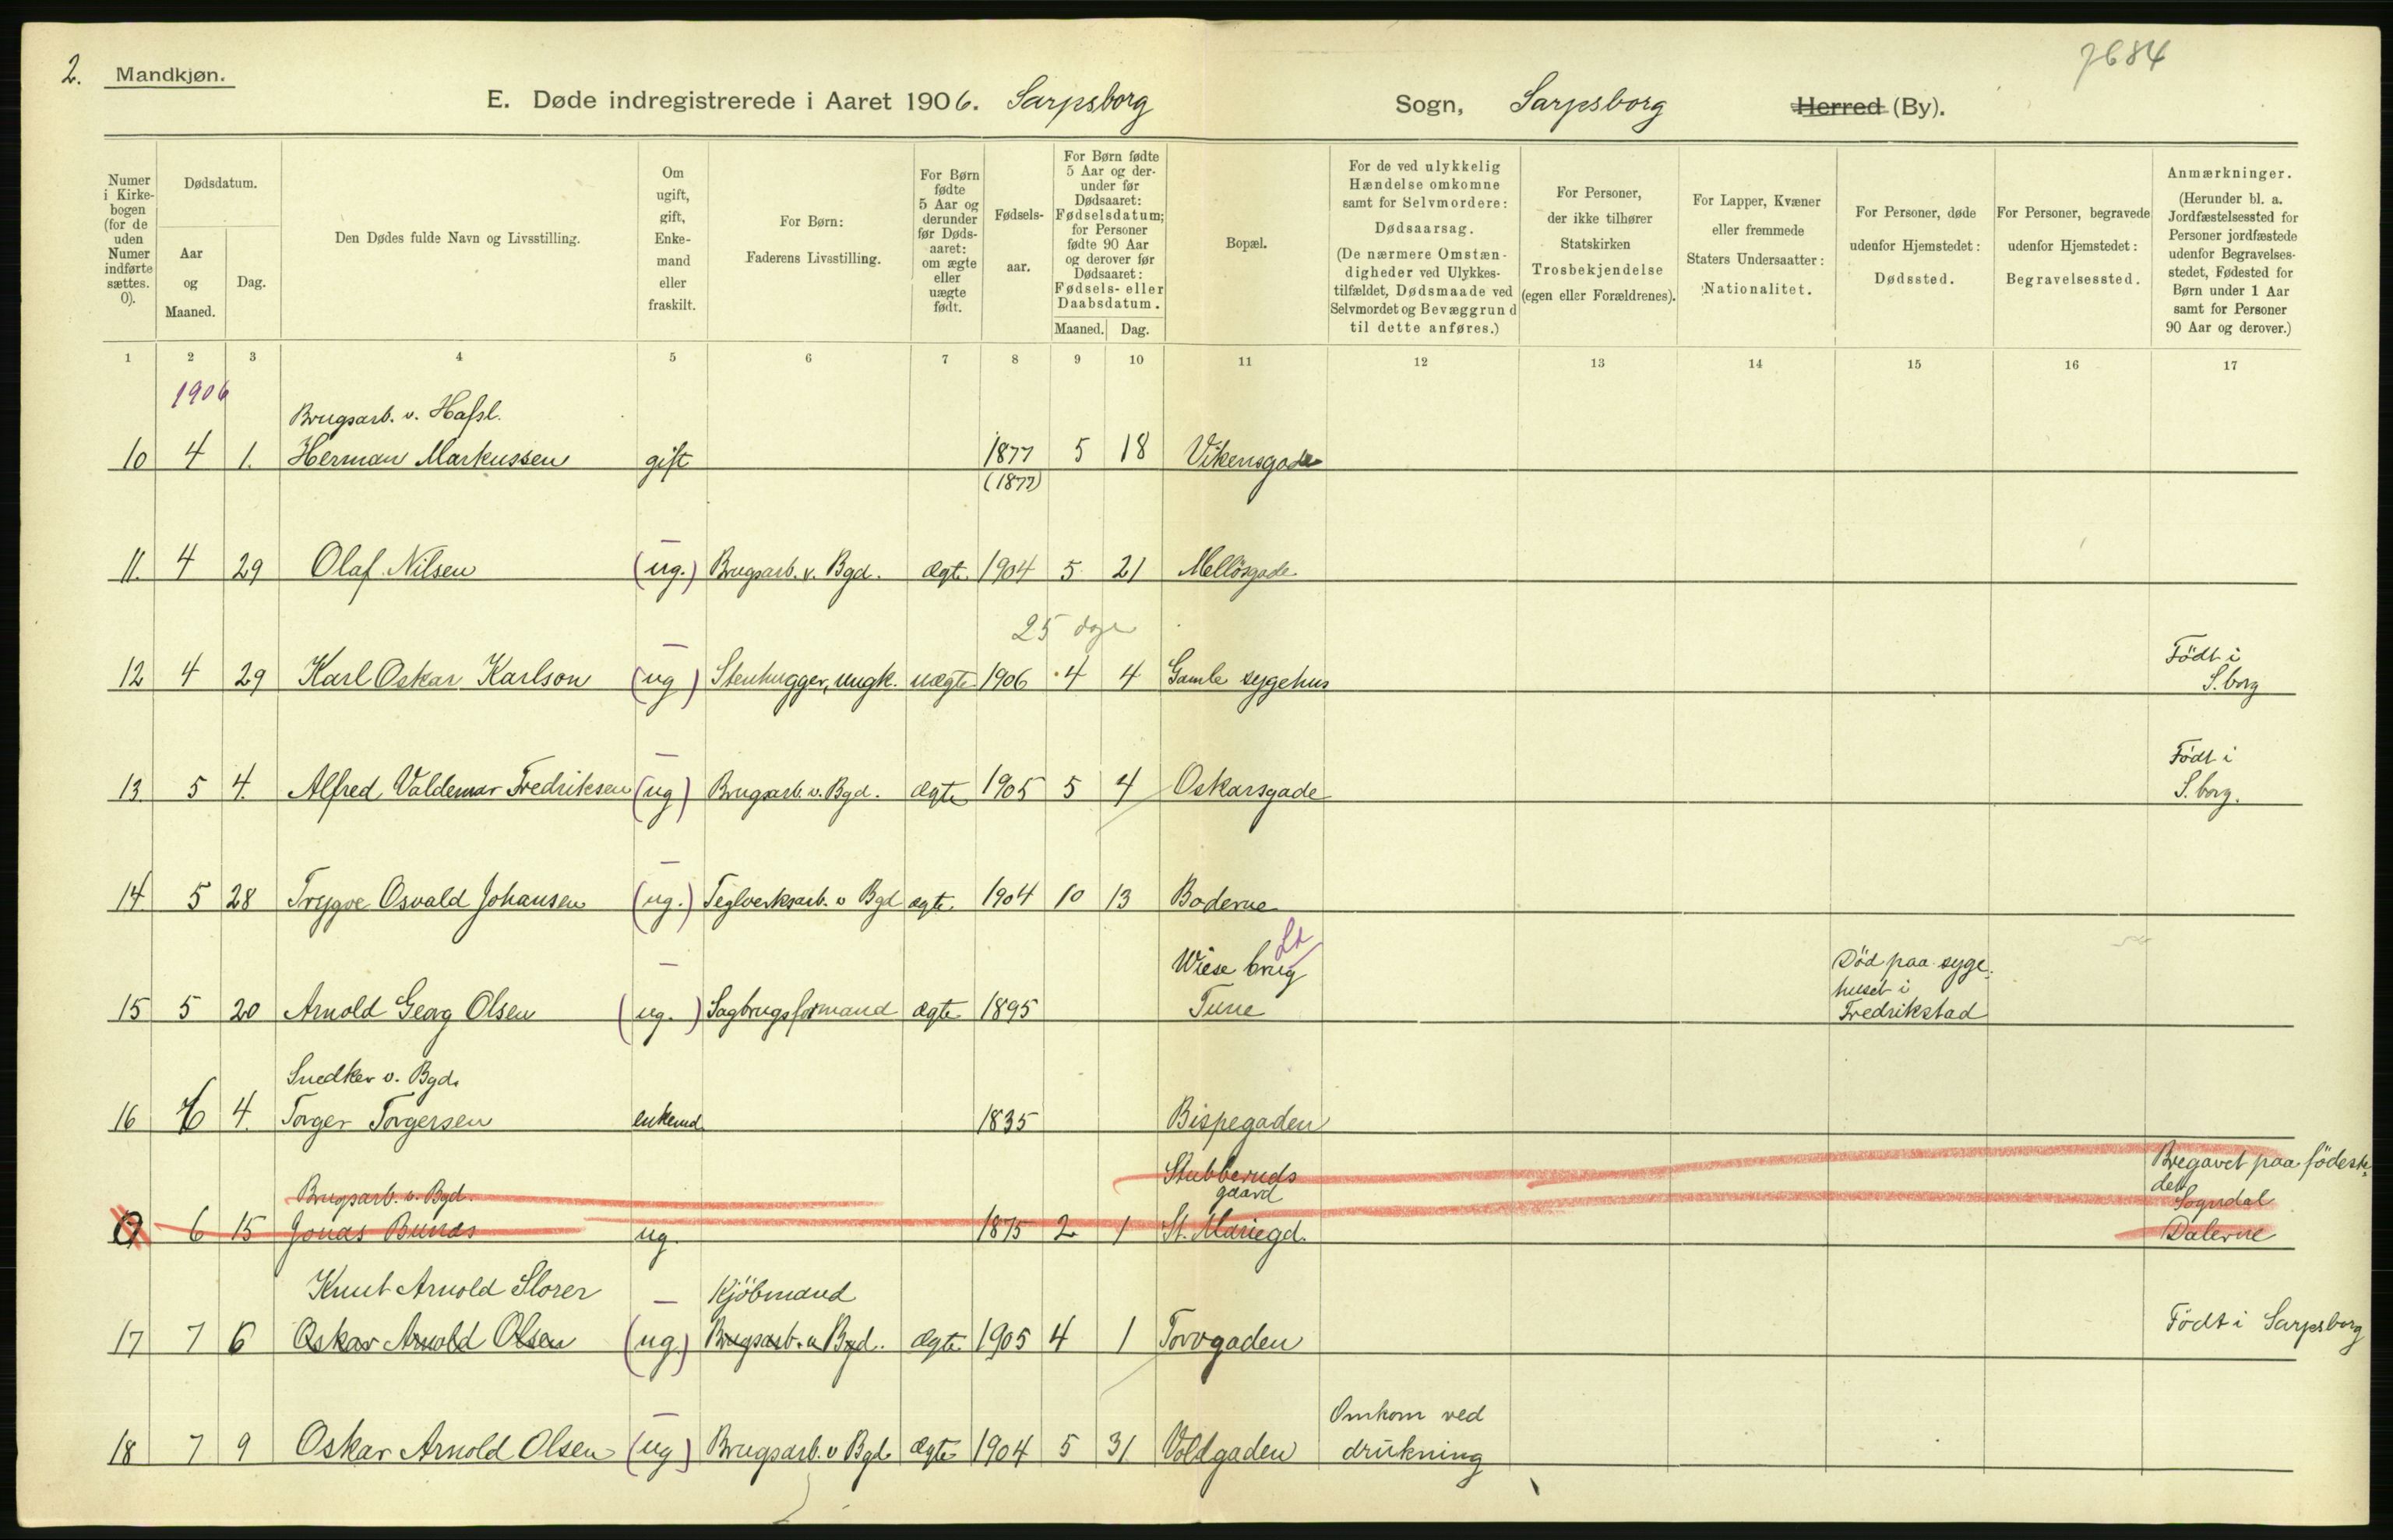 2. Mandkjøn.
7684
E. Døde indregistrerede i Aaret 1906. Sarpsborg Sogn, Sarpsborg Herred (By).
Numer i Kirke-bogen (for de uden Numer indførte sættes. 0).
Dødsdatum.
Aar og Maaned.
Dag.
Den Dødes fulde Navn og Livsstilling.
Om ugift, gift, Enke-mand eller fraskilt.
For Børn: Faderens Livsstilling.
For Børn fødte 5 Aar og derunder før Døds-aaret: om ægte eller uægte født.
Fødsels-aar.
For Børn fødte 5 Aar og der-under før Dødsaaret: Fødselsdatum; for Personer fødte 90 Aar og derover før Dødsaaret: Fødsels- eller Daabsdatum.
Maaned. Dag.
Bopæl.
For de ved ulykkelig Hændelse omkomne samt for Selvmordere: Dødsaarsag. (De nærmere Omstæn-digheder ved Ulykkes-tilfældet, Dødsmaade ved Selvmordet og Bevæggrund til dette anføres.)
For Personer, der ikke tilhører Statskirken Trosbekjendelse (egen eller Forældrenes).
For Lapper, Kvæner eller fremmede Staters Undersaatter: Nationalitet.
For Personer, døde udenfor Hjemstedet: Dødssted.
For Personer, begravede udenfor Hjemstedet: Begravelsessted.
Anmærkninger. (Herunder bl. a. Jordfæstelsessted for Personer jordfæstede udenfor Begravelses-stedet, Fødested for Børn under 1 Aar samt for Personer 90 Aar og derover.)
1 2 3 4 5 6 7 8 9 10 11 12 13 14 15 16 17
1906
Brugsarb. v. Hafsl.
10 4 1. Herman Markussen gift 1877 5 18 Vikensgade
(1877)
11. 4 29 Olaf Nilsen (ug.) Brugsarb. v. Bgd. ægte 1904 5 21 Mellösgade
25 dage
Födt i
12 4 29 Karl Oskar Karlson (ug) Stenhugger, ungk. uægte 1906 4 4 Gamle sygehus S.borg
Födt i
13. 5 4. Alfred Valdemar Fredriksen (ug) Brugsarb. v. Bgd. ægte 1905 5 4 Oskarsgade S.borg.
14 5 28 Trygve Osvald Johansen (ug.) Teglverksarb. v Bgd ægte 1904 10 13 Boderne
Wiese brug
Död paa syge-
huset i
15 5 20 Arnold Georg Olsen (ug.) Sagbrugsformand ægte 1895 Tune Fredrikstad
Snedker v. Bgd.
16 6 4. Torger Torgersen enkemd. 1835 Bispegaden
Stubberuds
gaard
Begravet paa födeste-
det
Sogndal
Brugsarb. v. Bgd.
0 6 15 Jonas Bunæs ug. 1875 2 1 St. Mariegd. Dalerne
Knut Arnold Storer Kjöbmand
17 7 6 Oskar Arnold Olsen (ug.) Brugsarb. v Bgd. ægte 1905 4 1 Torvgaden Födt i Sarpsborg
Omkom ved
18 7 9 Oskar Arnold Olsen (ug) Brugsarb. v Bgd. ægte 1904 5 31 Voldgaden drukning